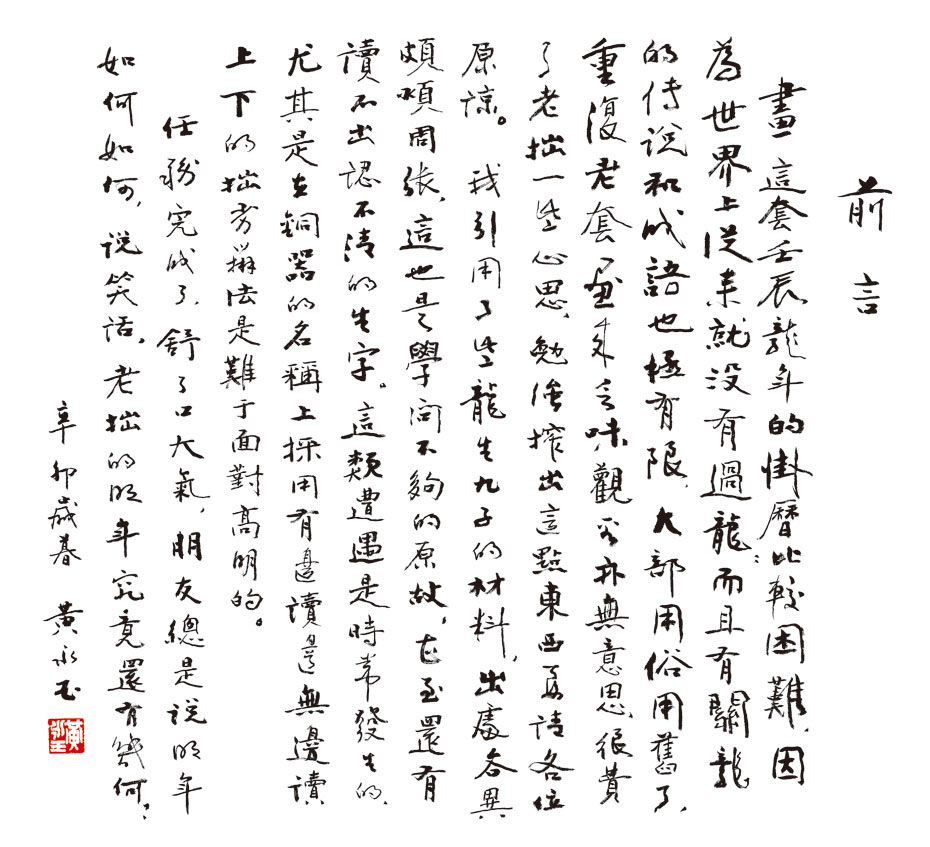 前言
畫這套壬辰龍年的掛曆比較困難，因
為世界上從来就没有過龍；而且有關龍
的传说和成語也極有限，大部用俗用舊了，
重復老套画來乏味觀者亦無意思，很費
了老拙一些心思，勉強搾出這點東西請各位
原諒。我引用了些龍生九子的材料，出處各異
頗煩周张，這也是學问不夠的原故，甚至還有
讀不出認不清的生字。這類遭遇是時常發生的，
尤其是在銅器的名稱上採用有邊讀邊無邊讀
上下的拙劣辦法是難于面對高明的。
任務完成了，舒了口大氣，朋友總是说明年
如何如何，说笑话，老拙的明年究竟還有幾何？
辛卯歲暮 黄永玉
黃永玉